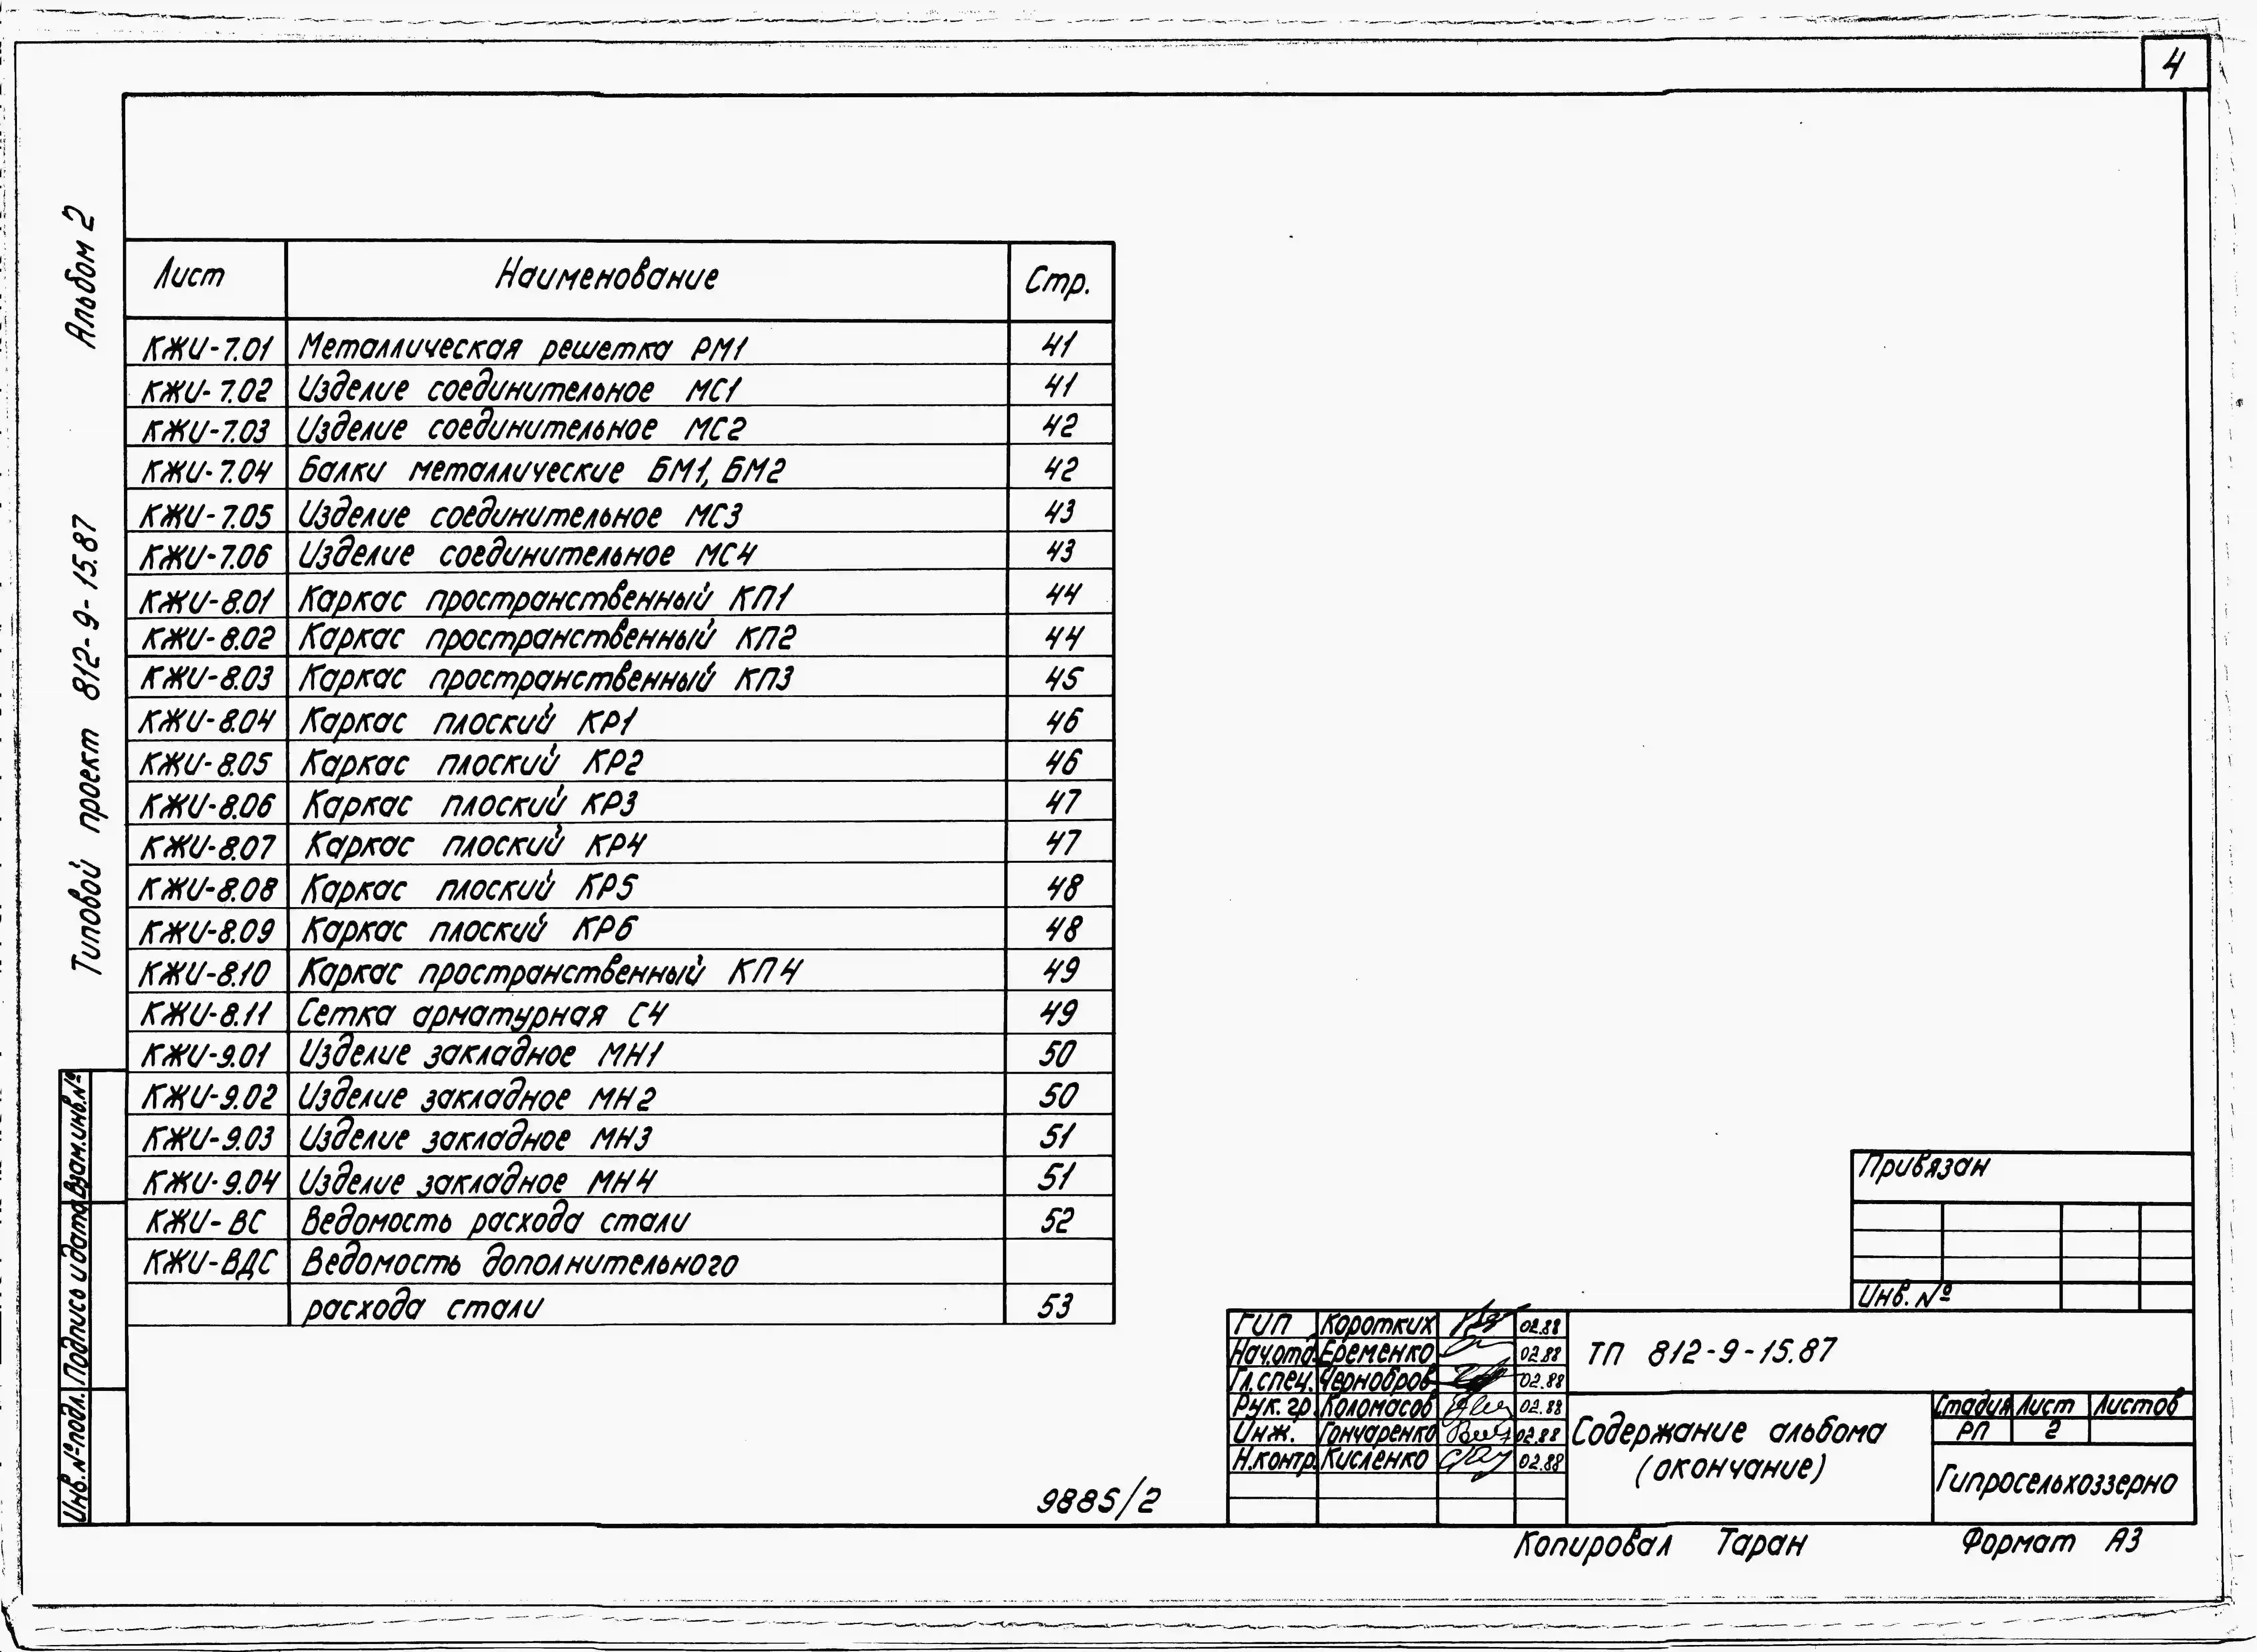 4
Альбом 2
Типовой проект 812-9-15.87
Лист Наименование Стр.
КЖИ-7.01 Металлическая решетка РМ1 41
КЖИ-7.02 Изделие соединительное МС1 41
КЖИ-7.03 Изделие соединительное МС2 42
КЖИ-7.04 Балки металлические БМ1, БМ2 42
КЖИ-7.05 Изделие соединительное МС3 43
КЖИ-7.06 Изделие соединительное МС4 43
КЖИ-8.01 Каркас пространственный КП1 44
КЖИ-8.02 Каркас пространственный КП2 44
КЖИ-8.03 Каркас пространственный КП3 45
КЖИ-8.04 Каркас плоский КР1 46
КЖИ-8.05 Каркас плоский КР2 46
КЖИ-8.06 Каркас плоский КР3 47
КЖИ-8.07 Каркас плоский КР4 47
КЖИ-8.08 Каркас плоский КР5 48
КЖИ-8.09 Каркас плоский КР6 48
КЖИ-8.10 Каркас пространственный КП4 49
КЖИ-8.11 Сетка арматурная С4 49
КЖИ-9.01 Изделие закладное МН1 50
КЖИ-9.02 Изделие закладное МН2 50
КЖИ-9.03 Изделие закладное МН3 51
КЖИ-9.04 Изделие закладное МН4 51
КЖИ-ВС Ведомость расхода стали 52
КЖИ-ВДС Ведомость дополнительного
расхода стали 53
Взам.инв.№
Подпись и дата
Инв.№подл.
Привязан
Инв. №
ГИП Коротких 02.88
Нач.отд. Еременко 02.88
Гл.спец. Чернобров 02.88
Рук.гр. Коломасов 02.88
Инж. Гончаренко 02.88
Н.контр. Кисленко 02.88
ТП 812-9-15.87
Содержание альбома
(окончание)
Стадия Лист Листов
РП 2
Гипросельхоззерно
9885/2
Копировал Таран Формат А3